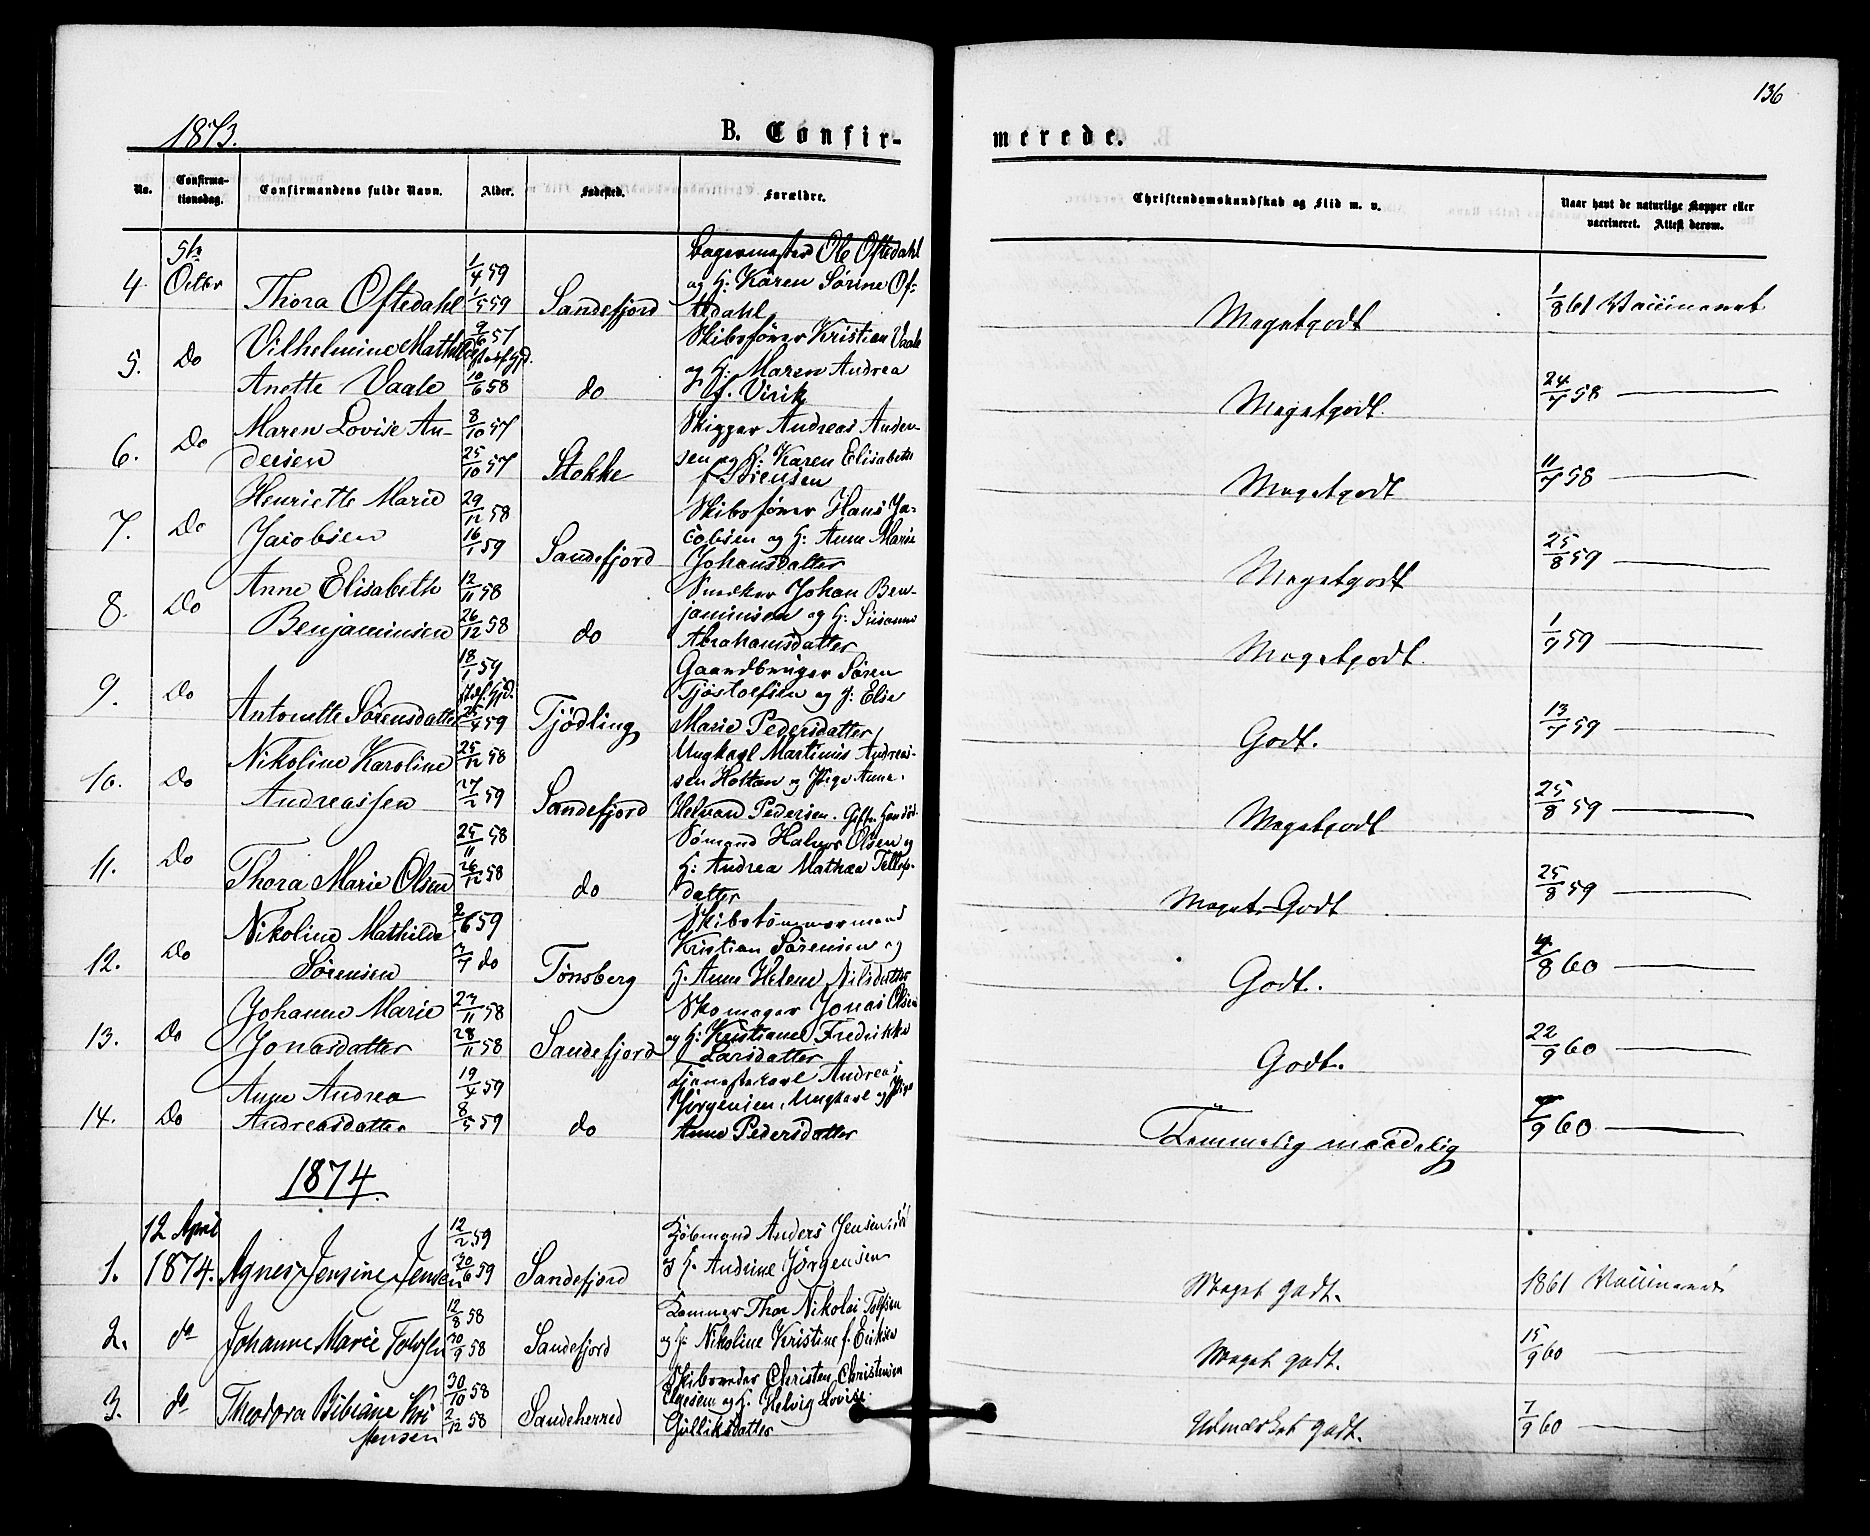 136
1873.
B. Confirmerede.
No. Confirmationsdag. Confirmandens fulde Navn. Alder. Fødested. Forældre. Christendomskundskab og Flid m. v. Naar havt de naturlige Kopper eller vaccineret. Attest derom.
4. 5te Octbr Thora Oftedahl 1/4 59 1/5 59 Sandefjord Bagermester Ole Oftedahl og H: Karen Sørine Oftedahl Megetgodt 1/8 61 Vaccineret
5. Do Vilhelmine Mathilde Anette Vaale 2/6 57 10/6 58 do Skibsfører Kristian Vaale og H: Maren Andrea f. Virik Megetgodt. 24/7 58 —
6. Do Maren Lovise Andersen 8/10 57 25/10 57 Stokke Skipper Andreas Andersen og H: Karen Elisabeth f Sørensen Megetgodt 11/7 58 —
7. Do Henriette Marie Jacobsen 29/12 58 16/1 59 Sandefjord Skibsfører Hans Jacobsen og H: Anne Marie Johansdatter Megetgodt 25/8 59 —
8. Do Anne Elisabeth Benjaminsen 12/11 58 26/12 58 do Snedker Johan Benjaminsen og H: Susanne Abrahamsdatter Megetgodt. 1/9 59 —
9. Do Antonette Sørensdatter 18/1 59 25/4 59 Tjødling Gaardbruger Søren Tjøstolfsen og H: Elise Marie Pedersdatter Godt. 13/7 59 —
10. Do Nikoline Karoline Andreassen 25/12 58 27/2 59 Sandefjord Ungkarl Martinus Andreassen Holtan og Pige Anne Pedersen. Megetgodt 25/8 59 —
11. Do Thora Marie Olsen 25/11 58 26/12 58 do Sømand Halvor Olsen og H: Andrea Mathea Tellefsdatter Meget Godt 25/8 59 —
12. Do Nikoline Mathilde Sørensen 2/6 59 7/7 do Tønsberg Skibstømmermand Kristian Sørensen og H. Anne Helene Nilsdatter Godt. 4/8 60 —
13. Do Johanne Marie Jonasdatter 27/11 58 28/11 58 Sandefjord Skomager Jonas Olsen og H: Kristiane Fredrikke Larsdatter Godt. 22/9 60 —
14. Do Anne Andrea Andreasdatter 19/4 59 8/5 59 do Tjenestekarl Andreas Jørgensen, Ungkarl og Pige Anne Pedersdatter Temmelig maadelig 7/9 60 —
1874.
1. 12 April 1874. Agnes Jensine Jensen 12/2 59 30/6 59 Sandefjord Kjøbmand Anders Jensen og H. Andrine Jørgensen Meget godt. 1861 Vaccineret
2. do Johanne Marie Tolfsen 12/8 58 30/9 58 Sandefjord Kemner Thor Nikolai Tolfsen og H: Nikoline Kristine f. Eriksen Meget godt. 15/9 60 —
3. do Theodora Bibiane Kristensen 30/10 58 2/12 58 Sandeherred Skibsreder Christen Christensen Elgesem og H. Helvig Lovise Gulliksdatter Udmærket godt. 7/9 60 —